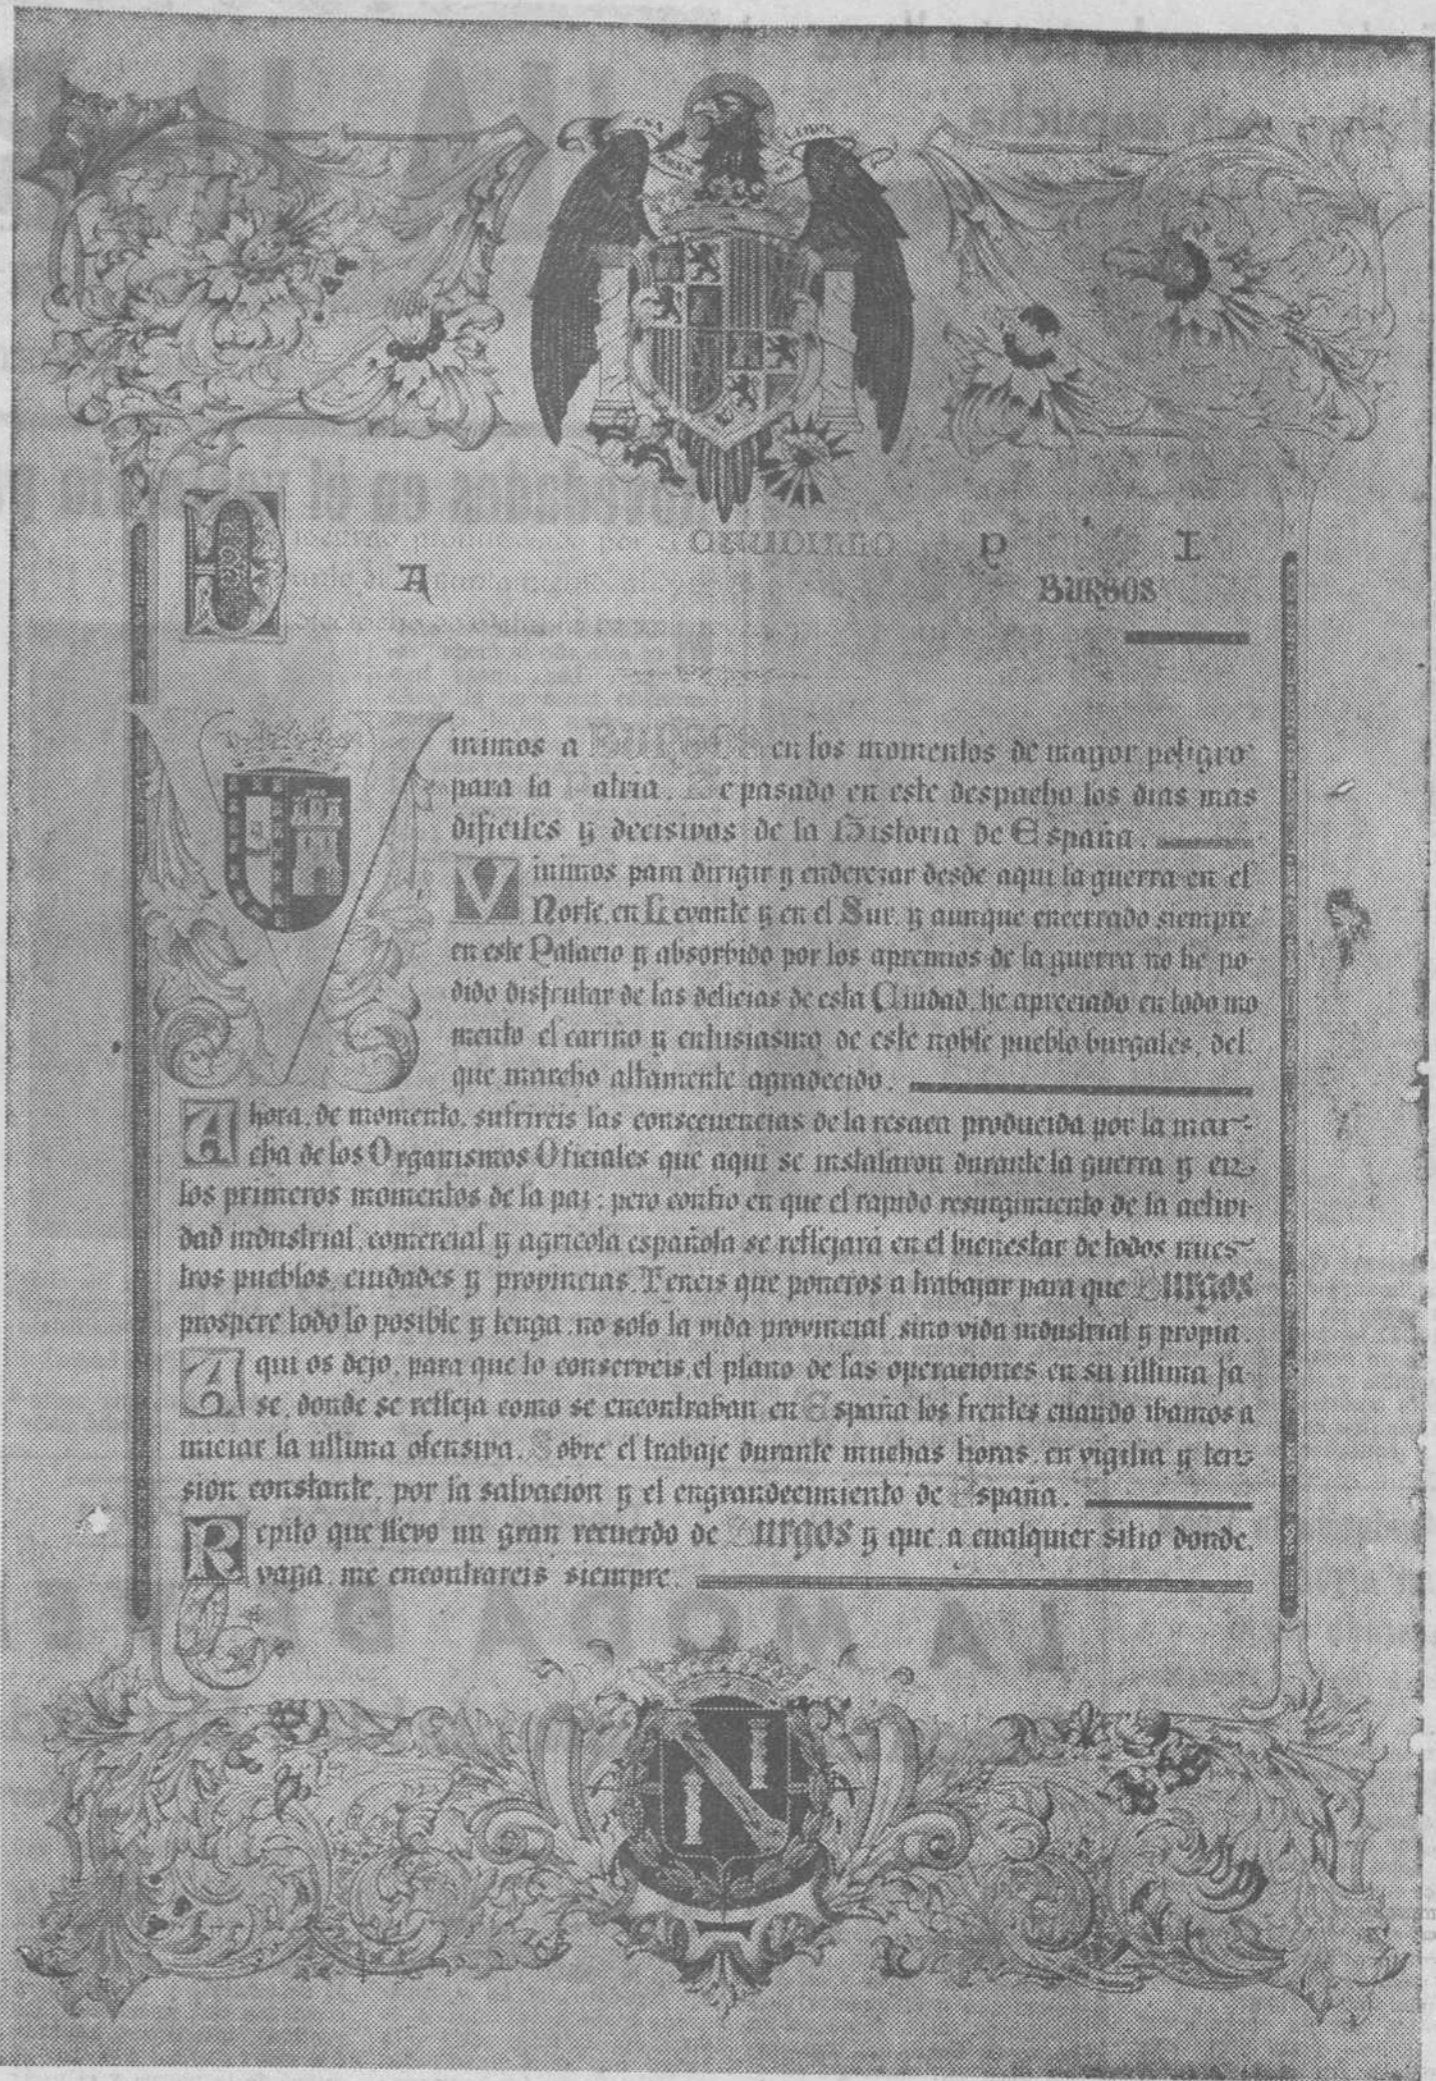 CAUDILLO
BURGOS
Vinimos a BURGOS en los momentos de mayor peligro
para la Patria. He pasado en este despacho los dias mas
dificiles y decisivos de la Historia de España.
Vinimos para dirigir y enderezar desde aqui la guerra en el
Norte, en Levante y en el Sur, y aunque encerrado siempre
en este Palacio y absorbido por los apremios de la guerra no he po-
dido disfrutar de las delicias de esta Ciudad, he apreciado en todo mo
mento el cariño y entusiasmo de este noble pueblo burgales, del
que marcho altamente agradecido.
Ahora, de momento, sufrireis las consecuencias de la resaca producida por la mar-
cha de los Organismos Oficiales que aqui se instalaron durante la guerra y en
los primeros momentos de la paz; pero confio en que el rapido resurgimiento de la activi-
dad industrial, comercial y agricola española se reflejará en el bienestar de todos nues-
tros pueblos, ciudades y provincias. Teneis que poneros a trabajar para que Burgos
prospere todo lo posible y tenga, no solo la vida provincial, sino vida industrial y propia.
Aqui os dejo, para que lo conserveis, el plano de las operaciones en su última fa-
se, donde se refleja como se encontraban en España los frentes cuando ibamos a
iniciar la ultima ofensiva. Sobre el trabaje durante muchas horas, en vigilia y ten-
sion constante, por la salvacion y el engrandecimiento de España.
Repito que llevo un gran recuerdo de Burgos y que, a cualquier sitio donde
vaya, me encontrareis siempre.